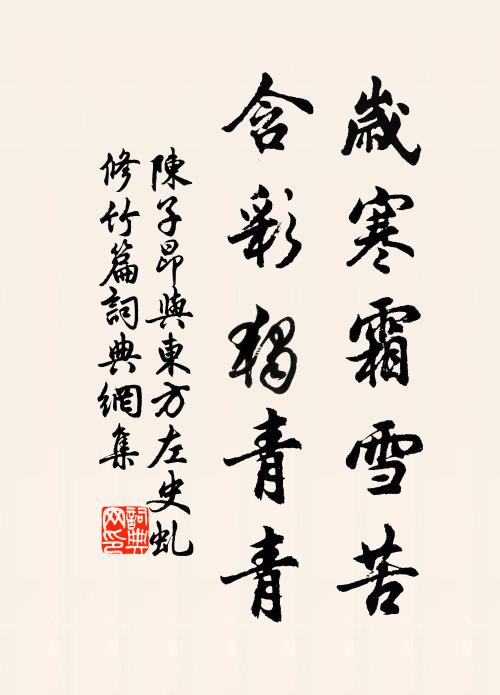 歲寒霜雪苦
含彩獨青青
陳子昂與東方左史虬
修竹篇詞典網集
詞典
网印